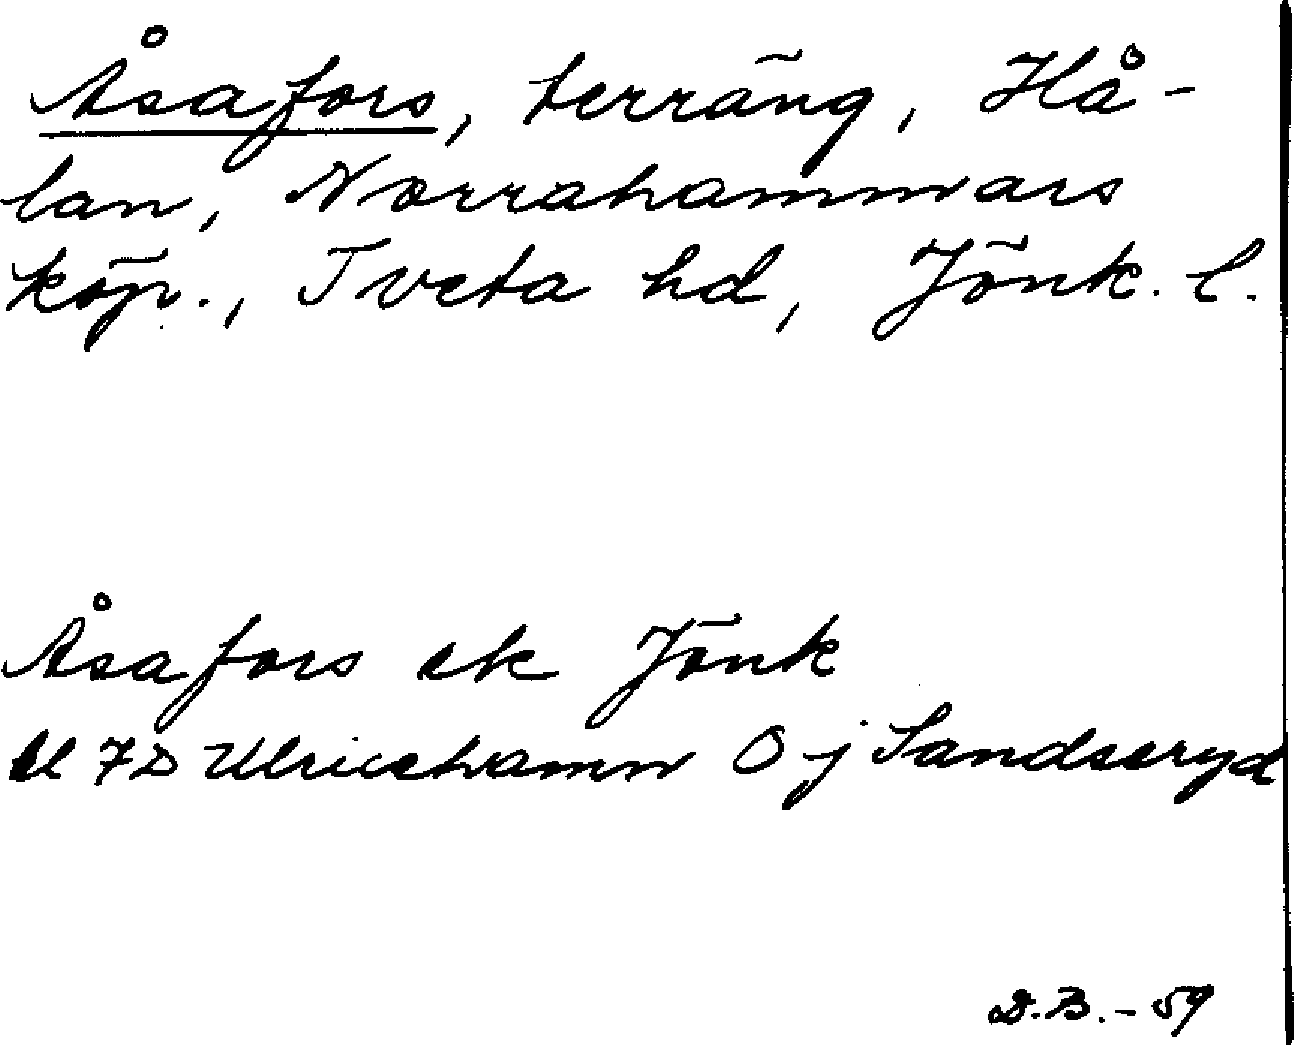 Åsafors, terräng, Hå-
lan, Norrahammars
köp., Tveta hd, Jönk. l.
Åsafors ek Jönk
7D Ulricehamn Ö j Sandseryd
D.B. - 59